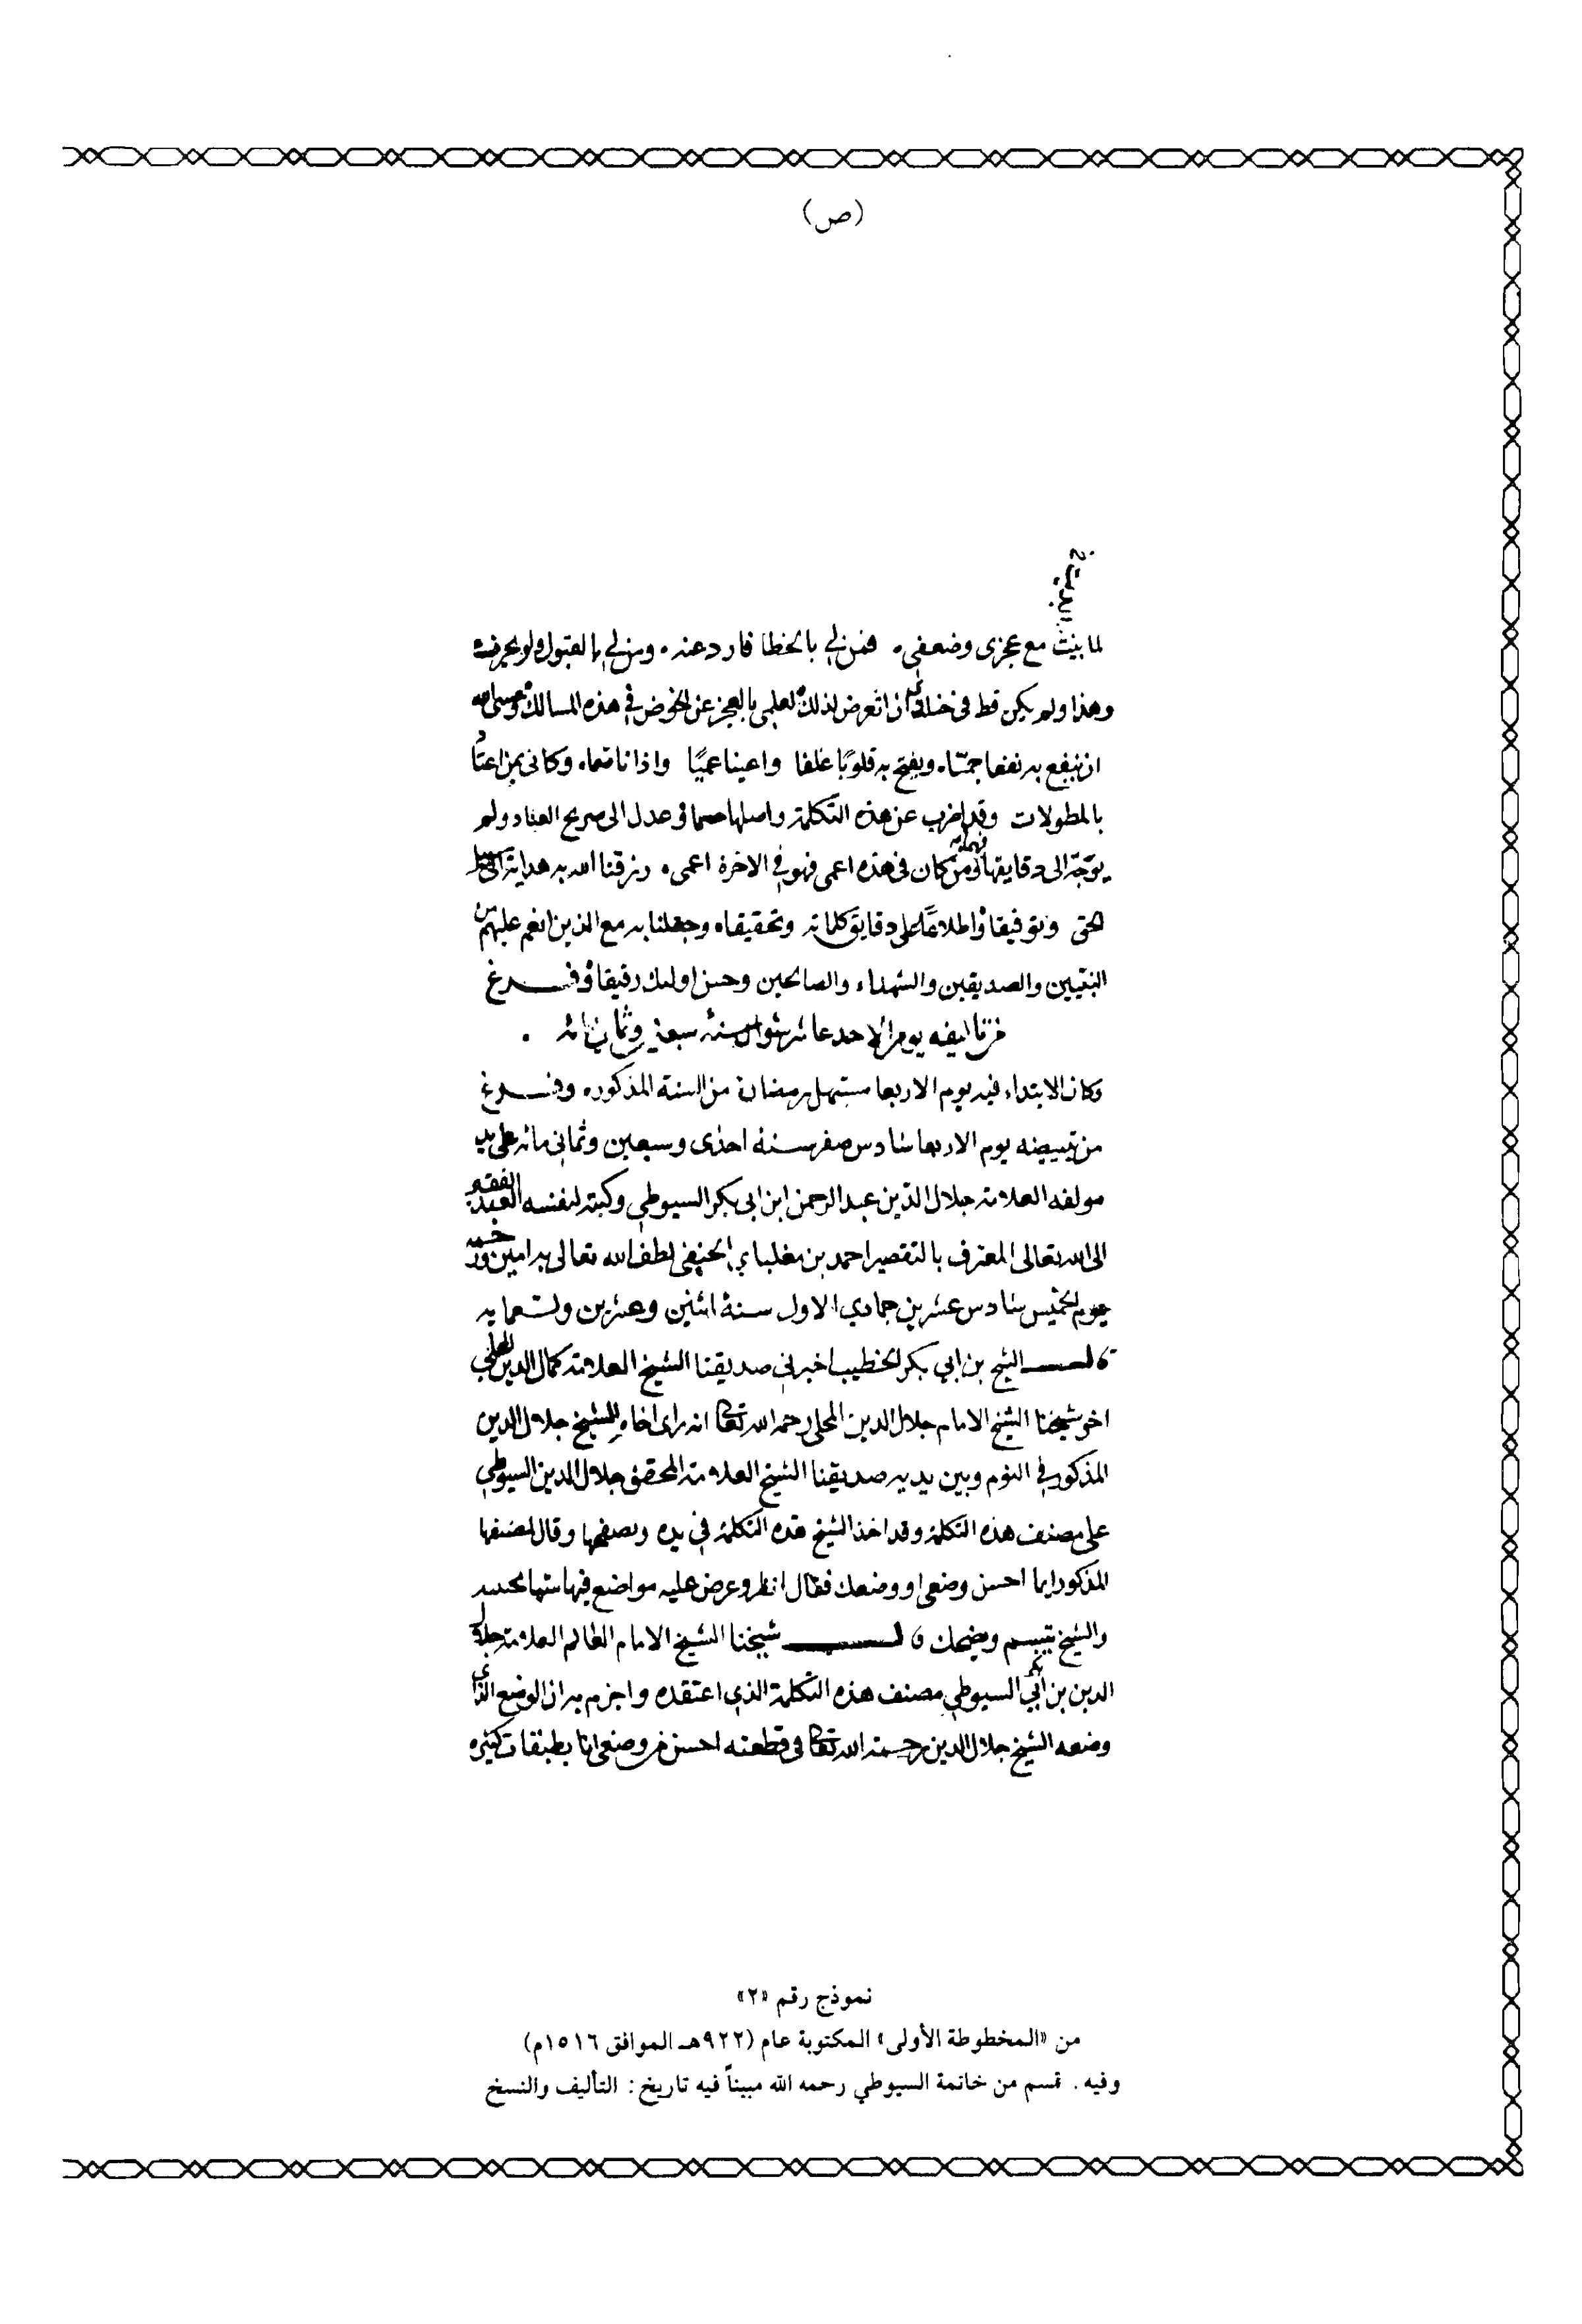 (ص)
لما بينت مع عجزى وضعفى . فمن لي بالخطا فارد عنه . ومن لي بالقبول ولو بحرف
وهذا ولم يكن قط فى خلدي ان اتعرض لذلك لعلمى بالعجز عن الخوض في هذه المسالك وعسى الله
ان ينفع به نفعا جمّا . ويفتح به قلوبًا غلفا واعينا عميًا واذانا صما . وكانى بمن اعتاد
بالمطولات وقد اضرب عن هذه التكلمة واصلها حسما وعدل الى صريح العناد ولم
يوجّه الى دقايقها فهما ومن كان فى هذه اعمى فهو في الاخرة اعمى . رزقنا الله به هداية الى سبيل
الحق وتوفيقا واطلاعًا على دقايق كلماته وتحقيقا . وجعلنا به مع الذين انعم عليهم من
النبيين والصديقين والشهداء والصالحين وحسن اوليك رفيقا وفرغ
من تاليفه يوم الاحد عاشر شوال سنة سبعين وثمان مائه .
وكان الابتداء فيه يوم الاربعا مستهل رمضان من السنة المذكوره وفرغ
من تبييضه يوم الاربعا سادس صفر سنة احدى وسبعين وثمانى مائه على يد
مولفه العلامة جلال الدّين عبد الرحمن ابن ابى بكر السيوطي وكتبه لنفسه العبد الفقير
الى الله تعالى المعترف بالتقصير احمد بن مغلباي الحنفى لطف الله تعالى به امين
يوم الخميس سادس عشرين جمادي الاول سنة اثنين وعشرين وتسعمايه
قال الشيخ بن ابي بكر الخطيب اخبرنى صديقنا الشيخ العلامة كمال الدين المحلي
اخو شيخنا الشيخ الامام جلال الدين المحلى رحمه الله تعالى انه راى اخاه الشيخ جلال الدين
المذكور في النوم وبين يديه صديقنا الشيخ العلامة المحقق جلال الدين السيوطي
على مصنف هذه التكلمة وقد اخذ الشيخ هذه التكلمة في يده وتصفحها وقال لمصنفها
المذكور ايما احسن وضعى او وضعك فقال انظر وعرض عليه مواضع فيها
والشيخ يتبسم ويضحك قال شيخنا الشيخ الامام العالم العلامة جلال
الدين بن أبي بكر السيوطي مصنف هذه التكلمة الذي اعتقده واجزم به ان الوضع الذي
وضعه الشيخ جلال الدين رحمة الله تعالى فى قطعته احسن من وضعى انا بطبقات كثيره
نموذج رقم «٢»
من «المخطوطة الأولى» المكتوبة عام (٩٢٢هـ الموافق ١٥١٦م)
وفيه . قسم من خاتمة السيوطي رحمه الله مبيناً فيه تاريخ : التأليف والنسخ